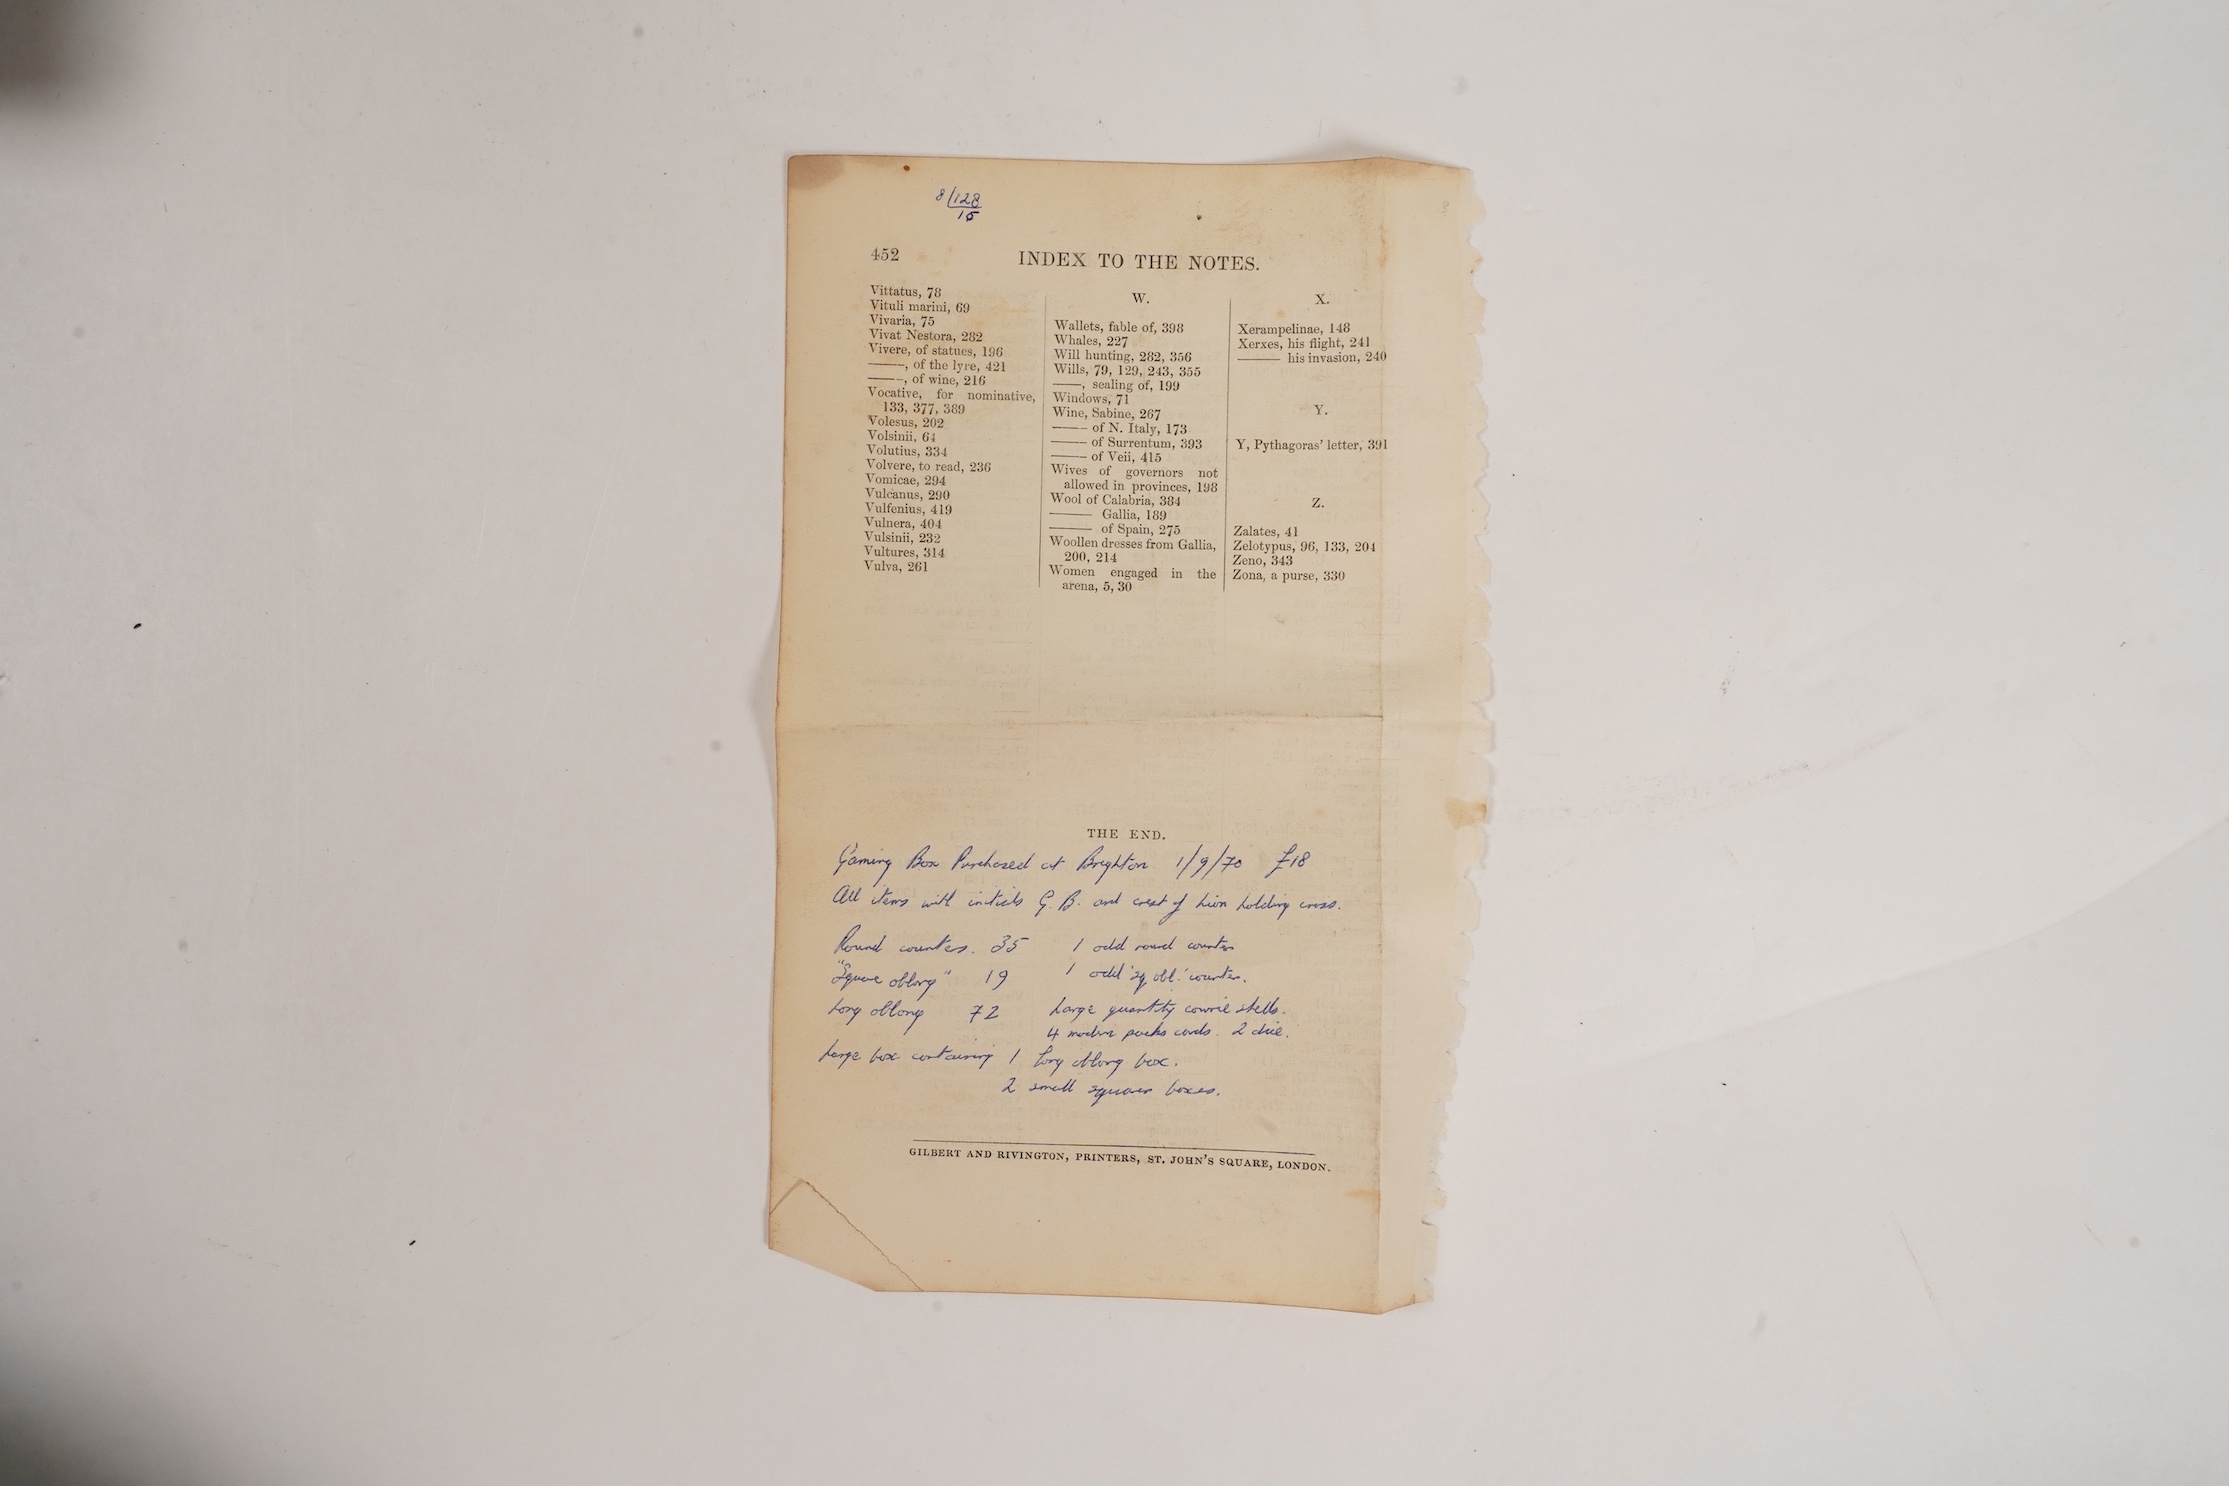 8/128
15
452
INDEX TO THE NOTES.
Vittatus, 78
Vituli marini, 69
Vivaria, 75
Vivat Nestora, 282
Vivere, of statues, 196
——, of the lyre, 421
——, of wine, 216
Vocative, for nominative,
133, 377, 389
Volesus, 202
Volsinii, 64
Volutius, 334
Volvere, to read, 236
Vomicae, 294
Vulcanus, 290
Vulfenius, 419
Vulnera, 404
Vulsinii, 232
Vultures, 314
Vulva, 261
W.
Wallets, fable of, 398
Whales, 227
Will hunting, 282, 356
Wills, 79, 129, 243, 355
——, sealing of, 199
Windows, 71
Wine, Sabine, 267
—— of N. Italy, 173
—— of Surrentum, 393
—— of Veii, 415
Wives of governors not
allowed in provinces, 198
Wool of Calabria, 384
—— Gallia, 189
—— of Spain, 275
Woollen dresses from Gallia,
200, 214
Women engaged in the
arena, 5, 30
X.
Xerampelinae, 148
Xerxes, his flight, 241
—— his invasion, 240
Y.
Y, Pythagoras' letter, 391
Z.
Zalates, 41
Zelotypus, 96, 133, 204
Zeno, 343
Zona, a purse, 330
THE END.
Gaming Box Purchased at Brighton 1/9/70 £18
All items with initials G. B. and crest of Lion holding cross.
Round counters. 35 1 odd round counter
"Square oblong" 19 1 odd 'sq obl.' counter.
Long oblong 72 Large quantity cowrie shells.
4 modern packs cards. 2 dice.
Large box containing 1 long oblong box.
2 small square boxes.
GILBERT AND RIVINGTON, PRINTERS, ST. JOHN'S SQUARE, LONDON.